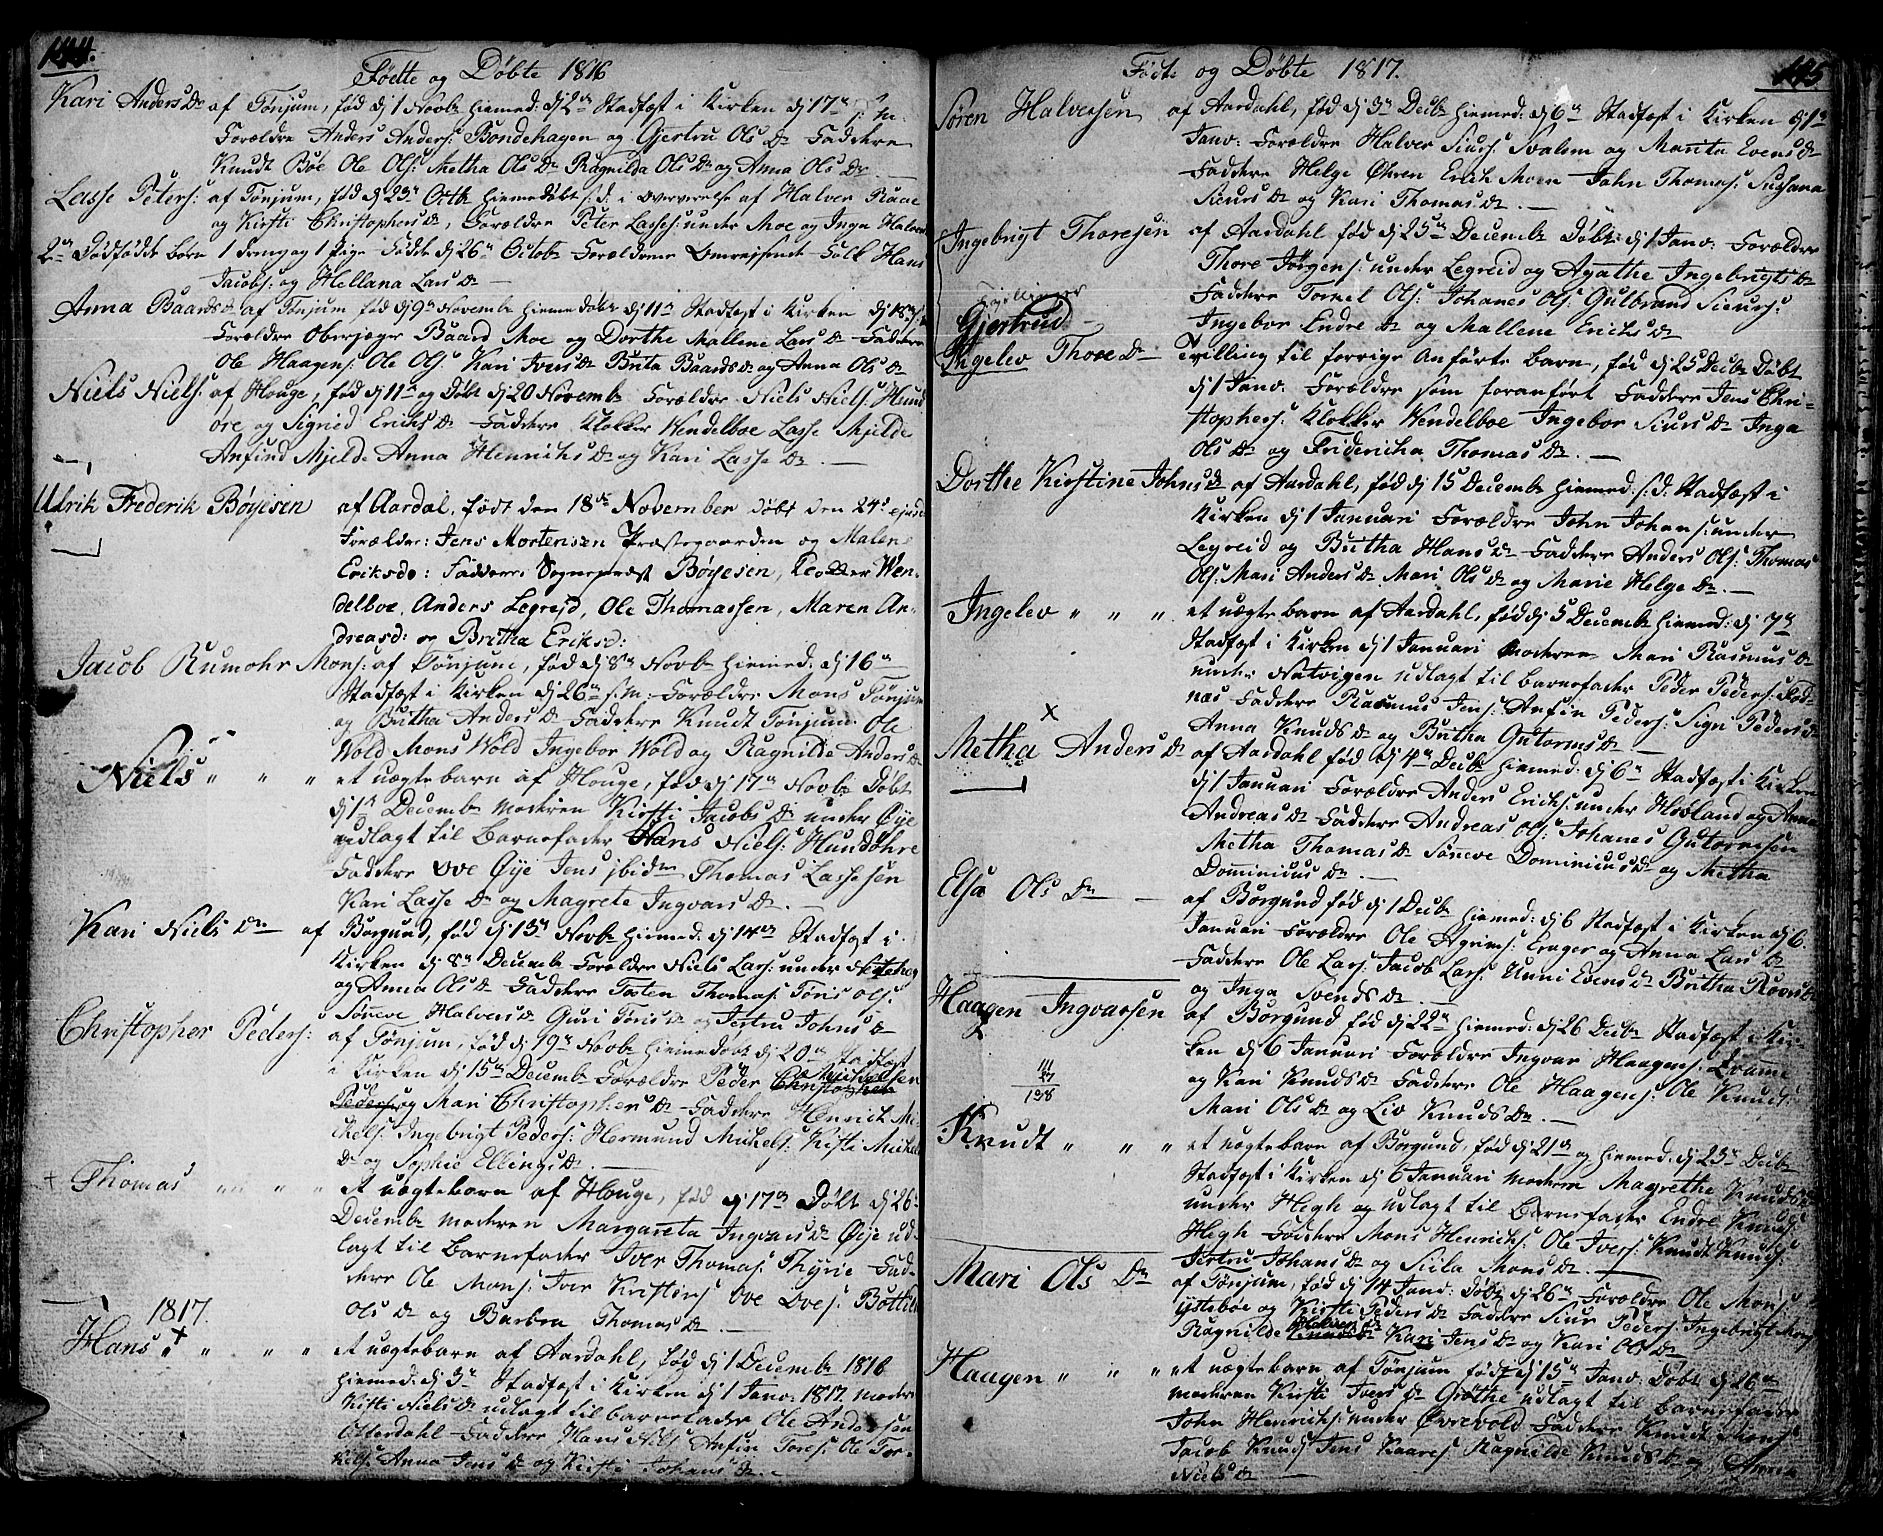 144.
Födte og Döbte 1816
Kari Anders Dr af Tönjum, fød dj 1 Novbr hiemed: dj 2den Stadfæst i Kirken dj 17n s: M:
Forældre Anders Anders: Bondehagen og Gjertru Ols Dr Faddere
Knudt Böe Ole Ols: Metha Ols Dr Ragnilda Ols Dr og Anna Ols Dr
Lasse Peters: af Tönjum, fød dj 23n Octb hiemedöbt s: d: i overværelse af Halver Raae
og Kirsti Christophers Dr, Forældre Peter Lasses: under Moe og Inga Halvers
2de Dödfödte Börn 1 dreng og 1 Pige födte dj 26n Octob Forældrene Omreisende Folk Hans
Jacobs: og Hellana Lars Dr
Anna Baards Dr af Tönjum fød dj 9n Novembr hiemedöbt dj 11n Stadfæst i Kirken dj 18n s:
Forældre Oberjæger Baard Moe og Dorthe Mallene Lars Dr Faddere
Ole Haagens: Ole Ols: Kari Ivers Dr Brita Baards Dr og Anna Ols Dr
Niels Niels: af Houge, fød dj 11n og Döbt dj 20 Novembr Forældre Niels Niels: Hund
öre og Signid Eriks Dr Faddere Klokker Wendelboe Lasse Mjelde
Anfind Mjelde Anna Henrichs Dr og Kari Lasse Dr
Ulrik Frederik Böyesen af Aardal, födt den 18de November döbt den 24de ejusd
Forælder: Jens Mortensen Præstegaarden og Malene
Eriksdr: Faddere: Sognepræst Böyesen, Klokker Wen-
delboe, Anders Legreid, Ole Thomassen, Maren An-
dreasd: og Britha Eriksd:
Jacob Rumohr Mons: af Tönjum, fød dj 8n Novb hiemed: dj 16n
Stadfæst i Kirken dj 26n s: M: Forældre Mons Tönjum
og Britha Anders Dr Faddere Knudt Tönjum Ole
Wold Mons Wold Ingebor Wold og Ragnilde Anders Dr
Niels " " " et uægte barn af Houge, fød dj 17n Novb: Döbt
dj 1n Decembr moderen Kirsti Jacobs Dr under Öye
udlagt til Barnefader Hans Niels: Hundöhre
Faddere Ove Öije Jens ibidm Thomas Lassesen
Kari Lasse Dr og Magrete Ingvars Dr
Kari Niels Dr af Borgund, fød dj 13n Novb hiemed: dj 14n Stadfæst i
Kirken dj 8n Decembr Forældre Niels Lars: under
og Anna Ols Dr Faddere Tosten Thomas: Töris Ols:
Sönneve Halvers Dr Guri Töris Dr og Jertru Johns Dr
Christopher Peders: af Tönjum, fød dj 19n Novb hiemedöbt dj 20n Stadfæst
i Kirken dj 15n Decembr Forældre Peder Michelsen
Peders og Mari Christophers Dr Faddere Henrich Mi-
chels: Ingebrigt Peders: Hermund Michels: Kisti Michels
Dr og Sophie Ellings Dr
+ Thomas " " " et uægtebarn af Houge, fød dj 17n Döbt dj 26n
Decembr moderen Margareta Ingvars Dr Öije ud-
lagt til Barnefader Iver Thomas: Thyrie Fad-
dere Ole Mons: Iver Kristens: Ove Oves: Bothilde
Ols Dr og Barbra Thomas Dr
1817.
Hans + " " " et uægtebarn af Aardahl, fød dj 1 Decembr 1816
hiemed: dj 3n Stadfæst i Kirken dj 1 Janv: 1817 moderen
Kisti Niels Dr udlagt til barnefader Ole Andersen
Otterdahl Faddere Hans Niels: Anfin Tores: Ole Tor-
kels: Anna Jens Dr og Kirsti Johans Dr
145
Födte og Döbte 1817.
Sören Halversen af Aardahl, fød dj 3n Decb hiemed: dj 6n Stadfæst i Kirken dj 1n
Janv: Forældre Halver Siurs: Svalem og Marita Evens Dr
Faddere Helge Öhren Erik Moen John Thomas: Susana
Siurs Dr og Kari Thomas Dr
Ingebrigt Thoresen af Aardahl fød dj 25n Decembr Döbt: dj 1 Janv: Forældre
Thore Jörgens: under Legreid og Agathe Ingebrigts Dr
Faddere Tornel Ols: Johanes Ols: Gulbrand Siurs:
Ingebor Endre Dr og Mallene Erichs Dr
Tvillinger
Gjertrud
Ingelev Thore Dr Tvilling til forrige Anförte barn, fød dj 25 Decbr Döbt
dj 1 Janv: Forældre som foranfört Faddere Jens Chri-
stophers: Klokker Wendelboe Ingebor Siurs Dr Inga
Ols Dr og Fridericha Thomas Dr
Dorthe Kirstine Johns Dr af Aardahl, fød dj 15 Decembr hiemed: s: d: Stadfæst i
Kirken dj 1 Januari Forældre John Johans: under
Legreid og Britha Hans Dr Faddere Anders Ols: Thomas
Ols: Mari Anders Dr Mari Ols Dr og Marie Helge Dr
Ingelev " " " et uægte barn af Aardahl, fød dj 5 Decembr hiemed: dj 7n
Stadfæst i Kirken dj 1 Januari moderen Mari Rasmus Dr
under Natvigen udlagt til barnefader Peder Peders: Fod-
nas Faddere Rasmus Jens: Anfin Peders: Signi Peders Dr
Anna Knuds Dr og Britha Gutorms Dr
x
Metha Anders Dr af Aardahl fød dj 4n Decb hiemed: dj 6n Stadfæst i Kirken
dj 1 Januari Forældre Anders Erichs: under Hovland og Anna
Andreas Dr Faddere Andreas Ols: Johanes Gutormsen
Metha Thomas Dr Sönneve Dominicus Dr og Metha
Dominicus Dr
Elsa Ols Dr af Borgund fød dj 1 Decb hiemed: dj 6 Stadfæst i Kirken dj 6
Januari Forældre Ole Agrims: Enger og Anna Lars Dr
Faddere Ole Lars: Jacob Lars: Unni Evens Dr Britha
og Inga Svends Dr
Haagen Ingvarssen af Borgund fød dj 22n hiemed: dj 26 Decbr Stadfæst i Kir-
ken dj 6 Januari Forældre Ingvar Haagens: Qvamme
og Kari Knuds Dr Faddere Ole Haagens: Ole Knuds:
Mari Ols Dr og Liv Knuds Dr
138
Knudt " " " et uægtebarn af Borgund, fød dj 21n og hiemed: dj 23n Decbr
Stadfæst i Kirken dj 6 Januari moderen Magrethe Knuds Dr
under Hegh og udlagt til Barnefader Endre Knuds:
Hegh Faddere Mons Henrichs: Ole Ivers: Knudt Knuds:
Jertru Johans Dr og Siila Mons Dr
Mari Ols Dr af Tönjum, fød dj 14 Janv: Döbt dj 26n Forældre Ole Mons:
Ysteböe og Kirsti Peders Dr Faddere Siur Peders: Ingebrigt Mons:
Ragnilde Halvers Dr Kari Jens Dr og Kari Ols Dr
Haagen " " " et uægtebarn af Tönjum födt dj 15n Janv: Döbt dj 26n
moderen Kirsti Ivers Dr Grothe udlagt til barnefader
John Henrichs: under Övrevold Faddere Knudt Mons:
Jacob Knuds: Jens Kaares: Ragnilde Knuds Dr og Anna
Niels Dr